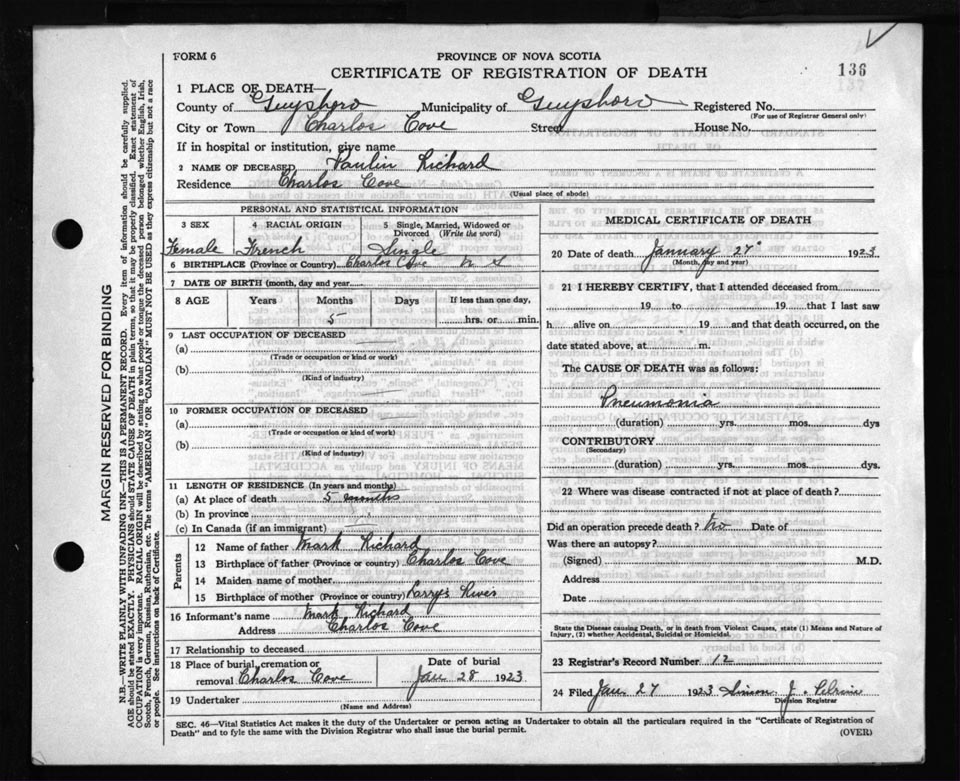 FORM 6
PROVINCE OF NOVA SCOTIA
CERTIFICATE OF REGISTRATION OF DEATH
136
1 PLACE OF DEATH—
County of Guysboro Municipality of Guysboro Registered No.
(For use of Registrar General only)
City or Town Charlos Cove Street House No.
If in hospital or institution, give name
2 NAME OF DECEASED Paulin Richard
Residence Charlos Cove
(Usual place of abode)
PERSONAL AND STATISTICAL INFORMATION
3 SEX 4 RACIAL ORIGIN 5 Single, Married, Widowed or Divorced (Write the word)
Female French Single
6 BIRTHPLACE (Province or Country) Charlos Cove N S
7 DATE OF BIRTH (month, day and year)
8 AGE Years Months Days If less than one day,
5 hrs. or min.
9 LAST OCCUPATION OF DECEASED
(a)
(Trade or occupation or kind or work)
(b)
(Kind of industry)
10 FORMER OCCUPATION OF DECEASED
(a)
(Trade or occupation or kind of work)
(b)
(Kind of industry)
11 LENGTH OF RESIDENCE (In years and months)
(a) At place of death 5 months
(b) In province
(c) In Canada (if an immigrant)
Parents
12 Name of father Mark Richard
13 Birthplace of father (Province or country) Charlos Cove
14 Maiden name of mother
15 Birthplace of mother (Province or country) Larry's River
16 Informant's name Mark Richard
Address Charlos Cove
17 Relationship to deceased
18 Place of burial, cremation or removal Charlos Cove
Date of burial
Jan 28 1923
19 Undertaker
(Name and Address)
MEDICAL CERTIFICATE OF DEATH
20 Date of death January 27 1923
(Month, day and year)
21 I HEREBY CERTIFY, that I attended deceased from
19 to 19 that I last saw
h alive on 19 and that death occurred, on the
date stated above, at m.
The CAUSE OF DEATH was as follows:
Pneumonia
(duration) yrs. mos. dys
CONTRIBUTORY
(Secondary)
(duration) yrs. mos. dys.
22 Where was disease contracted if not at place of death?
Did an operation precede death? No Date of
Was there an autopsy?
(Signed) M.D.
Address
Date
State the Disease causing Death, or in death from Violent Causes, state (1) Means and Nature of
Injury, (2) whether Accidental, Suicidal or Homicidal.
23 Registrar's Record Number 12
24 Filed Jan 27 1923 Simon J. Pelrine
Division Registrar
SEC. 46—Vital Statistics Act makes it the duty of the Undertaker or person acting as Undertaker to obtain all the particulars required in the "Certificate of Registration of
Death" and to fyle the same with the Division Registrar who shall issue the burial permit.
(OVER)
MARGIN RESERVED FOR BINDING
N.B.—WRITE PLAINLY WITH UNFADING INK—THIS IS A PERMANENT RECORD. Every item of information should be carefully supplied.
AGE should be stated EXACTLY. PHYSICIANS should STATE CAUSE OF DEATH in plain terms, so that it may be properly classified. Exact statement of
OCCUPATION is very important. RACIAL ORIGIN will be described by stating to what people or tongue the deceased person belonged whether English, Irish,
Scotch, French, German, Russian, Ruthenian, etc. The terms "AMERICAN" OR "CANADIAN" MUST NOT BE USED as they express citizenship but not a race
or people. See instructions on back of Certificate.